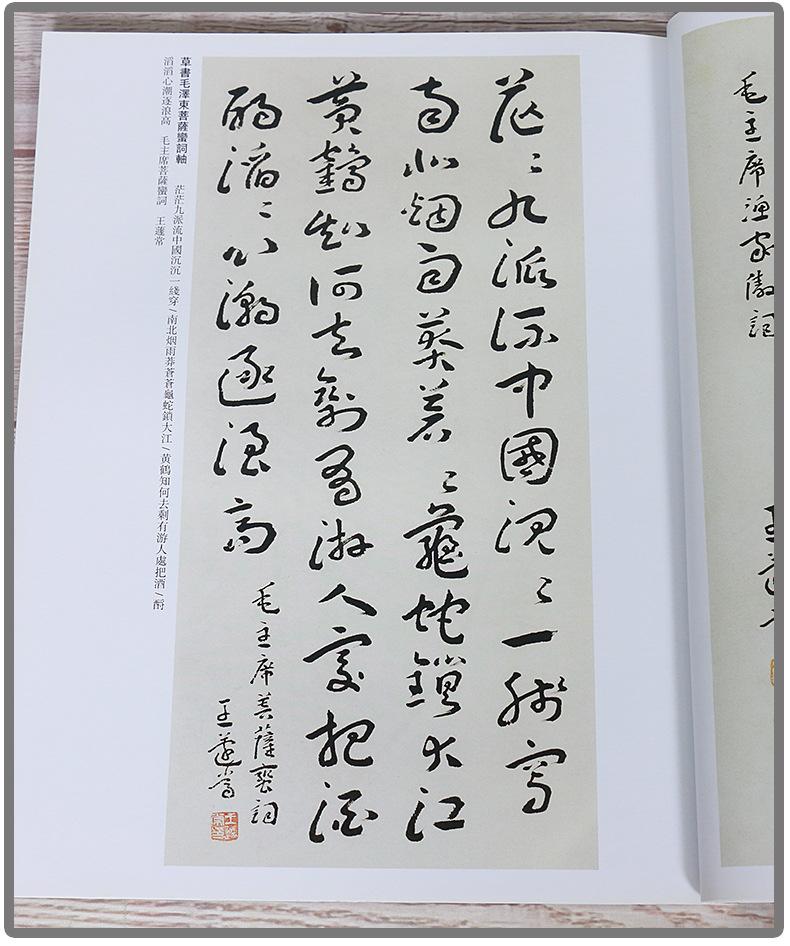 毛主席漁家傲詞
茫〻九派流中國沉〻一綫穿
南北烟雨莽蒼〻龜蛇鎖大江
黄鶴知何去剩有游人處把酒
酹滔〻心潮逐浪高
毛主席菩薩蠻詞
王蘧常
草書毛澤東菩薩蠻詞軸　茫茫九派流中國沉沉一綫穿/南北烟雨莽蒼蒼龜蛇鎖大江/黄鶴知何去剩有游人處把酒/酹
滔滔心潮逐浪高　毛主席菩薩蠻詞　王蘧常